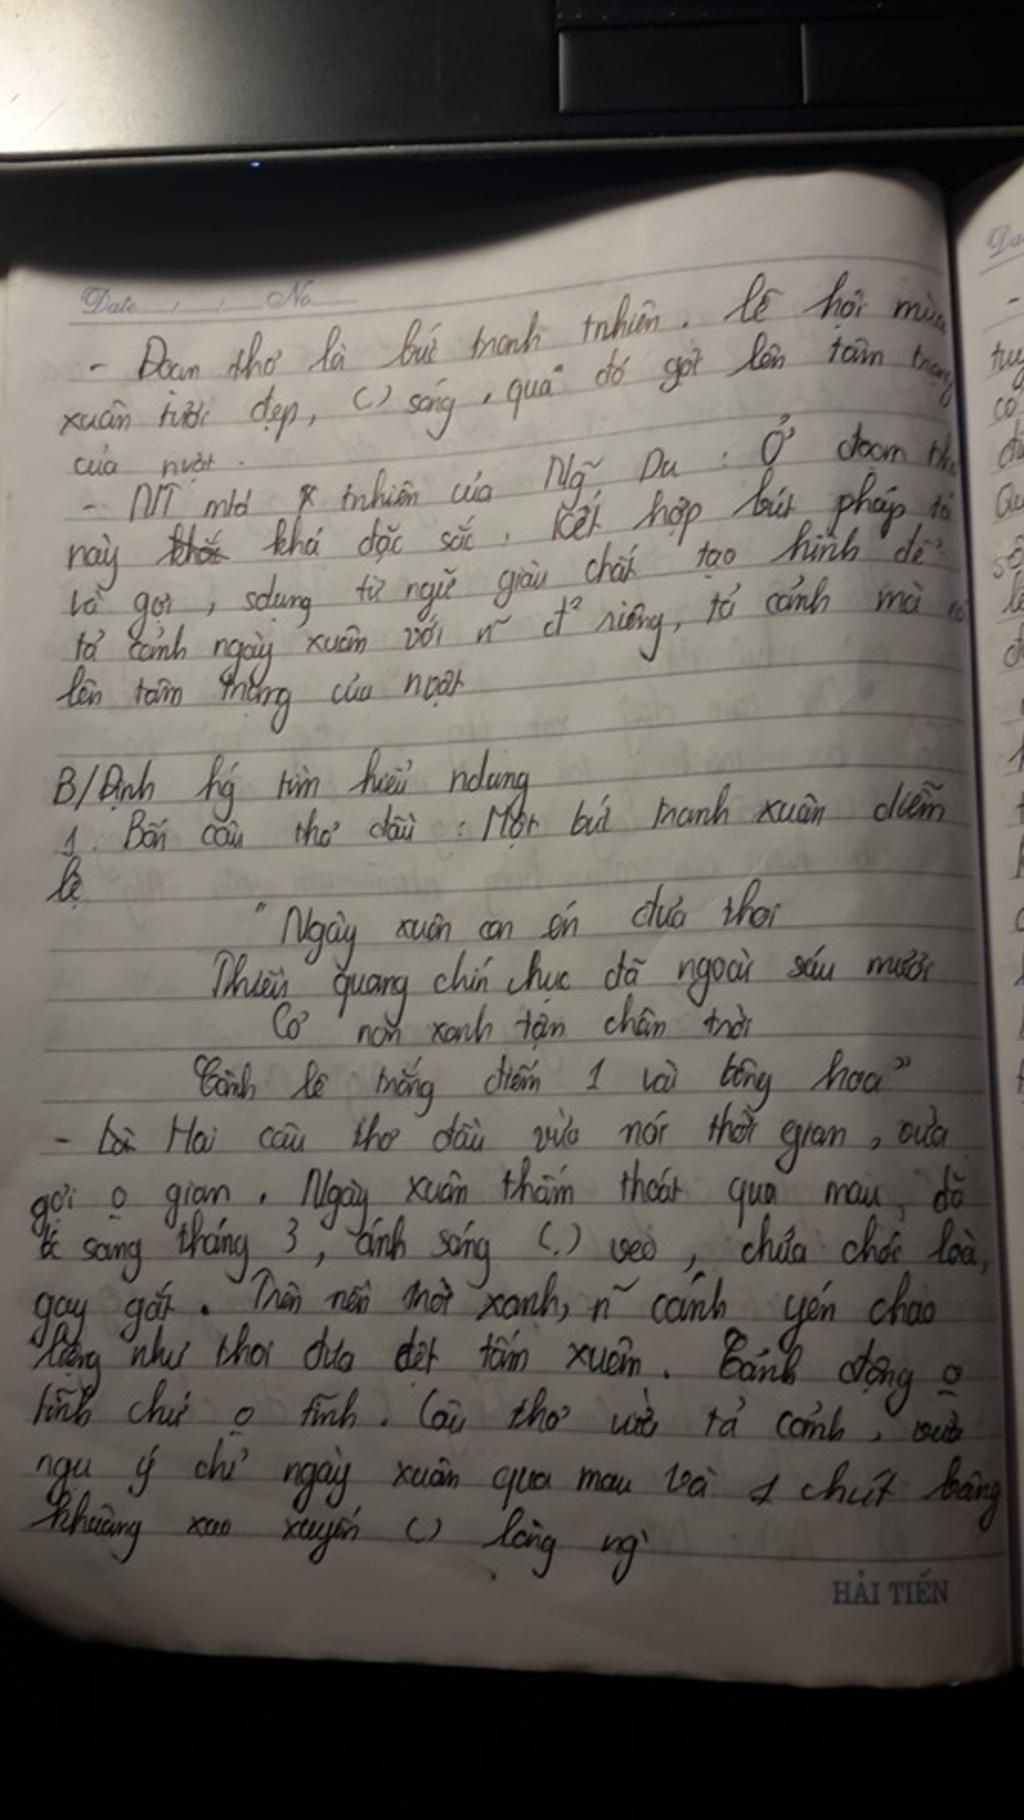 Date / / No
- Đoạn thơ là bức tranh tnhiên. lễ hội mùa
xuân tươi đẹp, ( ) sáng, qua đó gợi lên tâm trạng
của nvật.
- NT mtả tnhiên của Ng~ Du : Ở đoạn thơ
này khá đặc sắc. Kết hợp bút pháp tả
và gợi, sdụng từ ngữ giàu chất tạo hình để
tả cảnh ngày xuân với n~ đ² riêng, tả cảnh mà
lên tâm trạng của nvật
B/ Định hg tìm hiểu ndung
1. Bốn câu thơ đầu : Một bức tranh xuân diễm
lệ
"Ngày xuân con én đưa thoi
Thiều quang chín chục đã ngoài sáu mươi
Cỏ non xanh tận chân trời
Cành lê trắng điểm 1 vài bông hoa"
- Hai câu thơ đầu vừa nói thời gian, vừa
gợi o gian. Ngày xuân thấm thoát qua mau, đã
sang tháng 3, ánh sáng (.) veo, chưa chói loà,
gay gắt. Trên nền trời xanh, n~ cánh yến chao
liệng như thoi đưa dệt tấm xuân. Cảnh động o
tĩnh chứ o tĩnh. Câu thơ vừa tả cảnh, vừa
ngụ ý chỉ ngày xuân qua mau và 1 chút bâng
khuâng xao xuyến ( ) lòng ng`
HẢI TIẾN